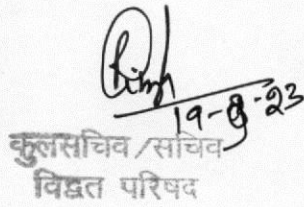 19-9-23
कुलसचिव/सचिव
विद्वत परिषद